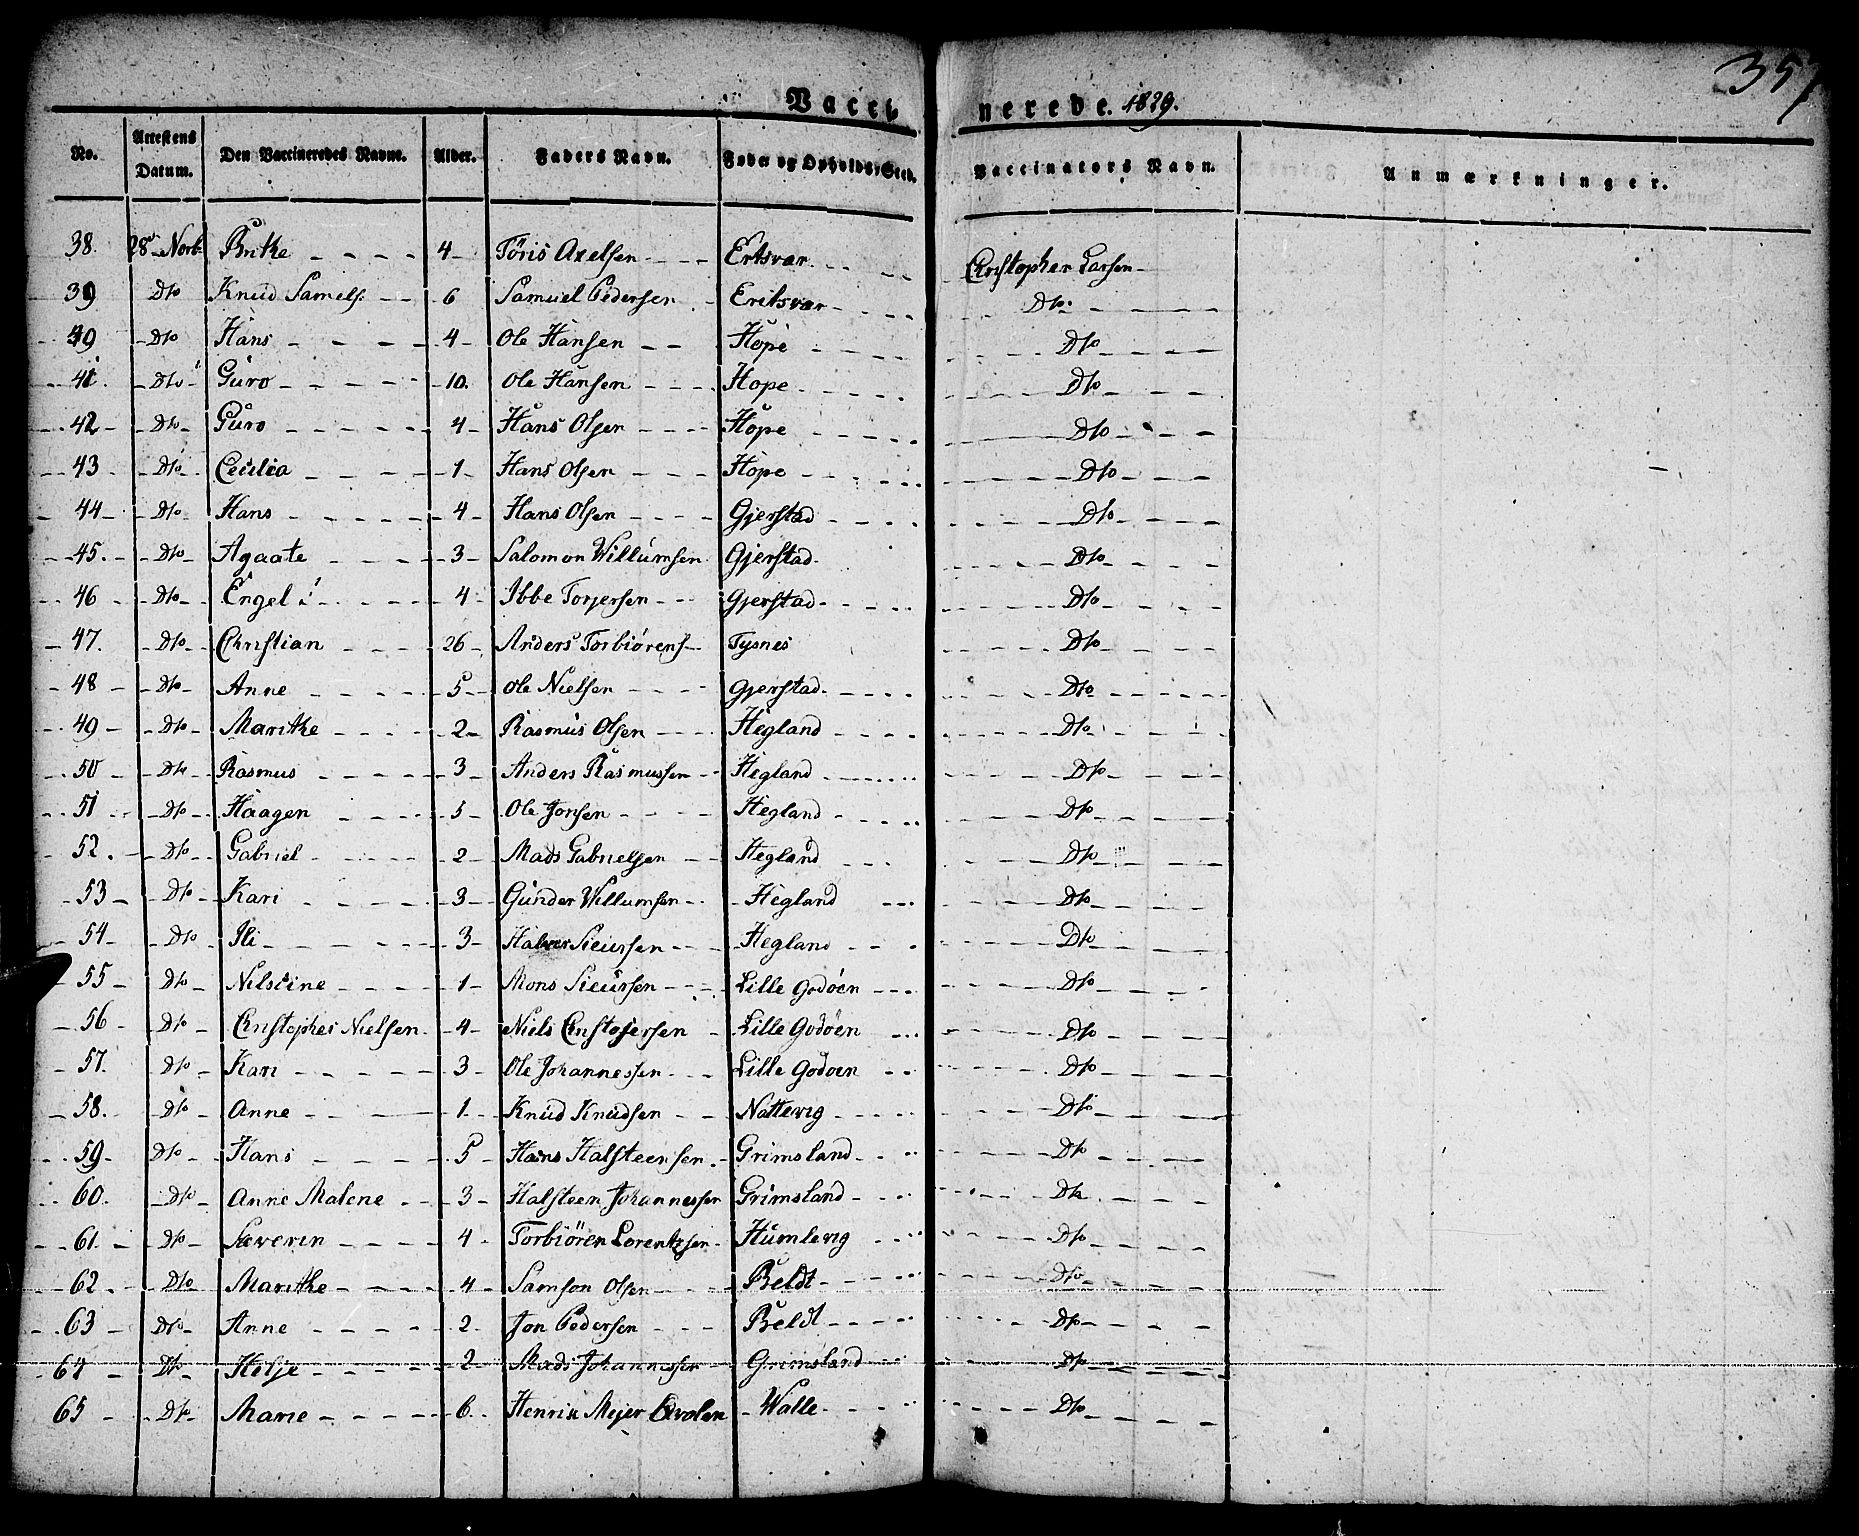 357
Vacci nerede. 1829.
No. Attestens Datum. Den Vaccineredes Navne. Alder. Faders Navn. Føde og Opholds-Sted. Vaccinators Navn. Anmærkninger.
38. 28 Novb Birthe 4 Töris Axelsen Ertsvær Christopher Larsen
39 Dto Knud Samuels: 6 Samuel Pedersen Eritsvær Dto
40 Dto Hans 4 Ole Hansen Hope Dto
41. Dto Guro 10. Ole Hansen Hope Dto
42 Dto Guro 4 Hans Olsen Hope Dto
43 Dto Cecilia 1 Hans Olsen Hope Dto
44 Dto Hans 4 Hans Olsen Gjerstad Dto
45. Dto Agaate 3 Salomon Willumsen Gjerstad Dto
46 Dto Engel 4 Ibbe Torjersen Gjerstad Dto
47. Dto Christian 26 Anders Torbiörens Tysnes Dto
48 Dto Anne 5 Ole Nielsen Gjerstad Dto
49 Dto Marithe 2 Rasmus Olsen Hegland Dto
50 Dto Rasmus 3 Anders Rasmussen Hegland Dto
51 Dto Haagen 5 Ole Jonsen Hegland Dto
52. Dto Gabriel 2 Mads Gabrielsen Hegland Dto
53 Dto Kari 3 Gunder Willumsen Hegland Dto
54 Dto Ili 3 Halvor Sieursen Hegland Dto
55 Dto Nilstine 1 Mons Sieursen Lille Godöen Dto
56 Dto Christopher Nielsen 4 Niels Christofersen Lille Godöen Dto
57. Dto Kari 3 Ole Johannessen Lille Godöen Dto
58. Dto Anne 1 Knud Knudsen Nattevig Dto
59 Dto Hans 5 Hans Halsteensen Grimsland Dto
60. Dto Anne Malene 3 Halsteen Johannessen Grimsland Dto
61. Dto Severin 4 Torbiören Lorentzsen Humlevig Dto
62 Dto Marithe 4 Samson Olsen Beldt Dto
63 Dto Anne 2 Jon Pedersen Beldt Dto
64 Dto Helje 2 Mads Johannessen Grimsland Dto
65 Dto Marie 6. Henrik Mejer Walle Dto